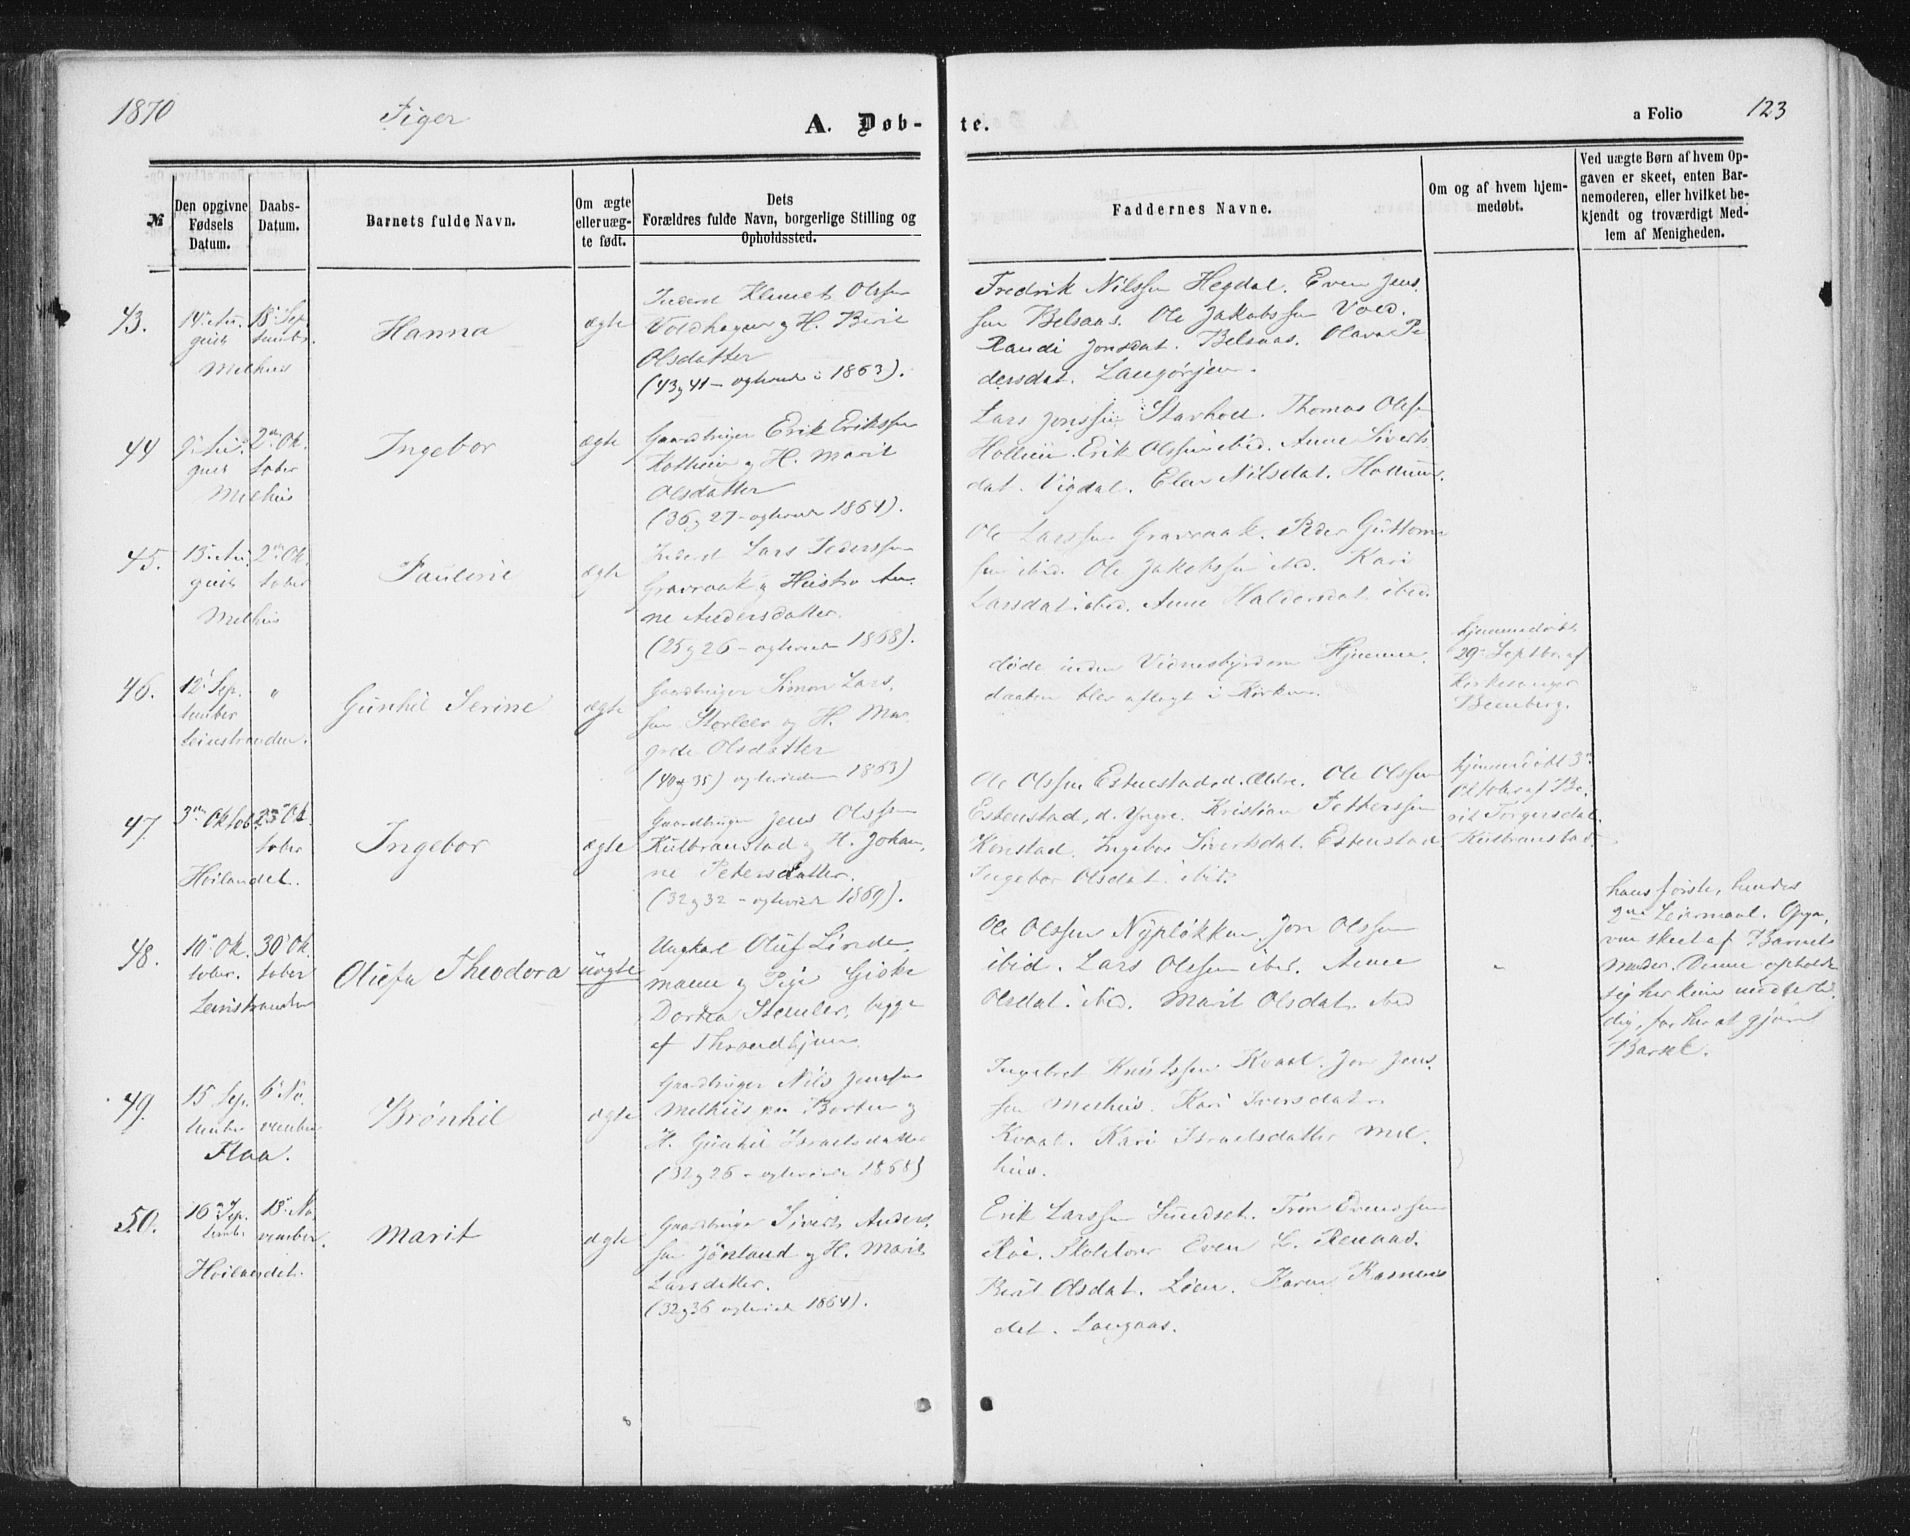 1870
Piger
A. Døb-
te.
a Folio
123
№
Den opgivne
Fødsels
Datum.
Daabs-
Datum.
Barnets fulde Navn.
Om ægte
eller uæg-
te født.
Dets
Forældres fulde Navn, borgerlige Stilling og
Opholdssted.
Faddernes Navne.
Om og af hvem hjem-
medøbt.
Ved uægte Børn af hvem Op-
gaven er skeet, enten Bar-
nemoderen, eller hvilket be-
kjendt og troværdigt Med-
lem af Menigheden.
43.
14de Au-
gust
Melhus
18de Sep-
tember.
Hanna
ægte
Inderst Klemet Olssen
Voldhagen og H. Berit
Olsdatter
(43 og 41 - egteviede i 1863).
Fredrik Nilssen Hegdal. Even Jens-
sen Belsaas. Ole Jakobssen Vold.
Randi Jonsdat. Belsaas. Olava Pe-
dersdat. Langørjen.
44
9de Au-
gust
Melhus
2den Ok-
tober
Ingebor
ægte
Gaardbruger Erik Erikssen
og H. Marit
Olsdatter
(36 og 27 - egteviede 1864).
Lars Jonssen Stavholt. Thomas Olssen
Hollum. Erik Olssen ibid. Anne Siverts-
dat. Vigdal. Elen Nilsdat. Hollum.
45.
13de Au-
gust
Melhus
2den Ok-
tober
Pauline
ægte
Inderst Lars Pederssen
Gravraak og Hustro An-
ne Andersdatter.
(25 og 26 - egteviede 1868).
Ole Larssen Gravraak. Peder Guttorms-
sen ibid. Ole Jakobssen ibid. Kari
Larsdat. ibid. Anne Haldorsdat. ibid.
46.
12te Sep-
tember
Leinstranden.
"
Gunhil Serine
ægte
Gaardbruger Simon Lars-
sen Storler og H. Mar-
grete Olsdatter
(40 og 35) egteviede 1863)
døde inden Vidnesbyrd om Hjemme-
daaben blev aflagt i Kirken.
hjemmedøbt
29de Septbr. af
Kirkesanger
Bemberg.
47.
3die Oktob.
Høilandet.
23de Ok-
tober
Ingebor
ægte
Gaardbruger Jens Olssen
Kulbranstad og H. Johan-
ne Petersdatter.
(32 og 32 - egteviede 1869).
Ole Olssen Estenstad, d. Ældre. Ole Olssen
Estenstad, d. Yngre. Kristian Petterssen
Konstad. Ingebor Sivertsdat. Estenstad
Ingebor Olsdat. ibid.
hjemmedøbt 3die
Oktober af Be-
rit Torgersdat.
Kulbranstad.
48.
10de Ok-
tober.
Leinstranden
30te Ok-
tober
Olufa Theodora
uægte
Ungkarl Oluf Linde-
mann og Pige Giske
Dortea Stemler, begge
af Throndhjem.
Ole Olssen Nypløkken. Jon Olssen
ibid. Lars Olssen ibid. Anne
Olsdat. ibid. Marit Olsdat. ibid
"
hans første, hendes
2det Leiermaal. Opga-
ven skeet af Barnets
Moder. Denne opholdt
sig her kun midlerti-
dig, for her at gjøre
Barsel.
49.
15 Sep-
tember
Flaa.
6te No-
vember
Brønhil
ægte
Gaardbruger Nils Jenssen
Melhus paa Borten og
H. Gunhil Israelsdatter
(32 og 26 - egteviede 1868)
Ingebret Knutssen Kvaal. Jon Jens-
sen Melhus. Kari Iversdat.
Kvaal. Kari Israelsdatter Mel-
hus.
50.
16de Sep-
tember
Høilandet.
13de No-
vember.
Marit
ægte
Gaardbruger Sivert Anders-
sen Jønland og H. Marit
Larsdatter.
(32 og 36 egteviede 1864).
Erik Larssen Sundset. Tron Evenssen
Røe. Skolelærer Even L. Renaas.
Berit Olsdat. Løen. Karen Rasmus-
dat. Langaas.